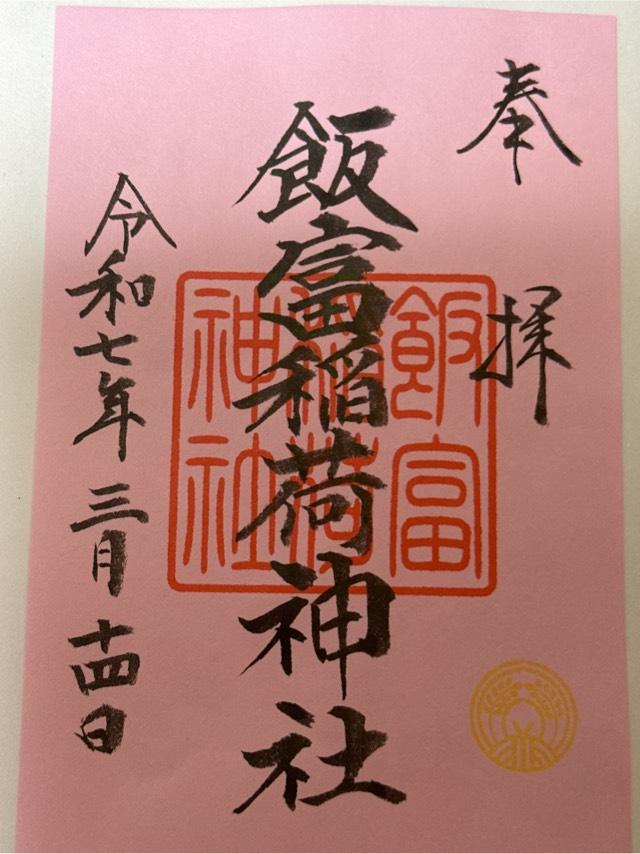 奉拝
飯富稲荷神社
飯富
稲荷
神社
令和七年三月十四日